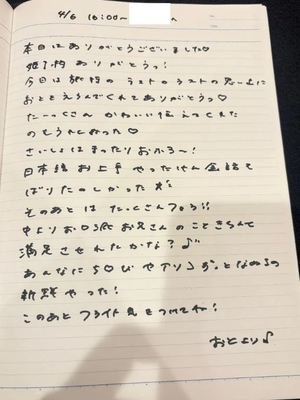 4/6 10:00〜 へ
本日はありがとうございました♡
ありがとうっ!
今日は旅行の ラストのラストの思い出に
おとをえらんでくれてありがとうっ♡
たーっくさん かわいい伝えてくれた
のもうれしかった♡
さいしょは まったりおふろ〜!
日本語 お上手 やったけん 会話も
ばりたのしかった
そのあとは たっくさん
お兄さん のこときちんと
満足させれたかな?♪
あんなに
新鮮やった!
このあと フライト 気をつけてね!
おとより♪